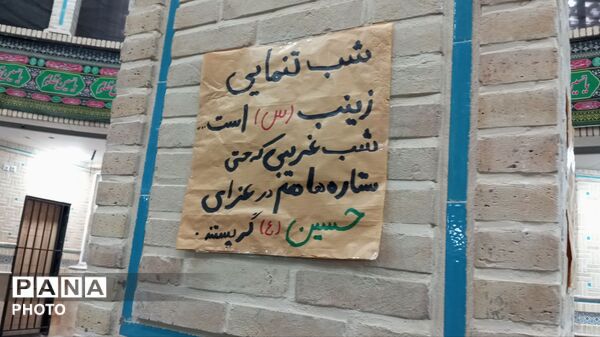 شب تنهایی
زینب (س) است...
شب غریبی که حتی
ستاره ها هم در عزای
حسین (ع) گریستند.
PANA
PHOTO